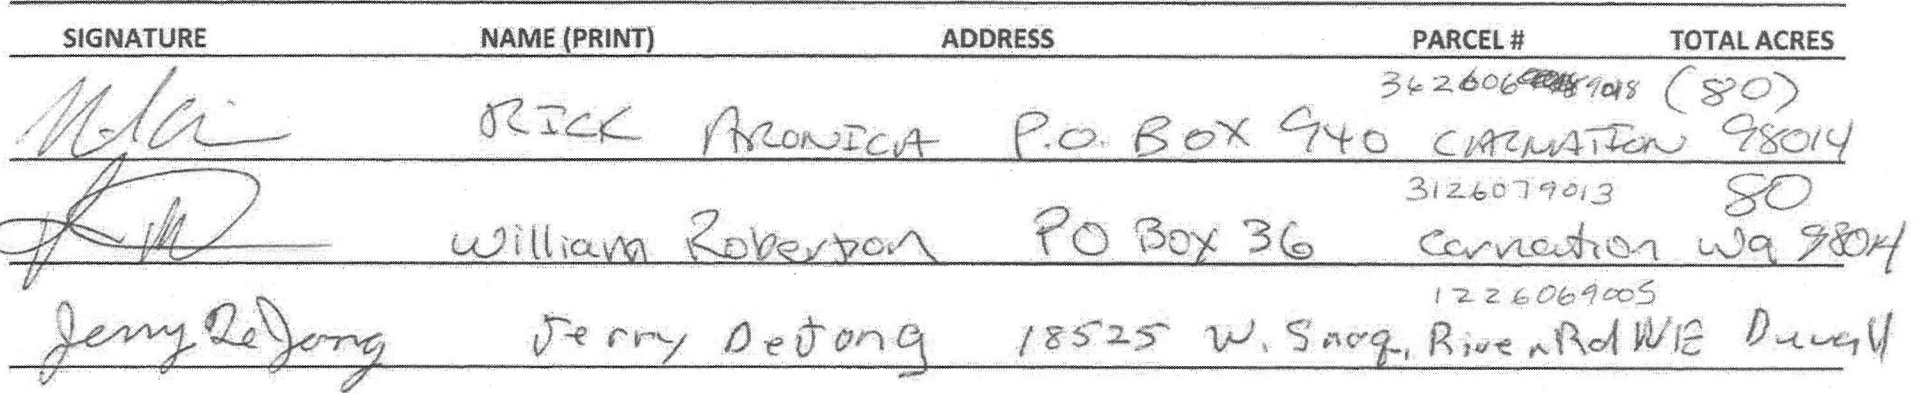 SIGNATURE NAME (PRINT) ADDRESS PARCEL # TOTAL ACRES
3626069018 (80)
RICK ARONICA P.O. BOX 940 CARNATION 98014
3126079013 80
William Roberson PO Box 36 Carnation Wa 98014
1226069005
Jerry DeJong Jerry DeJong 18525 W. Snoq. River Rd NE Duvall